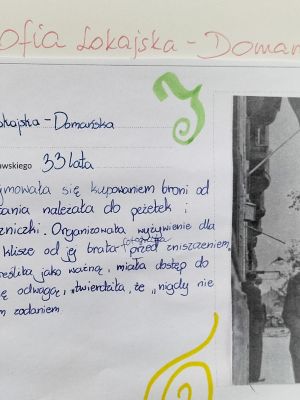 ofia Łokajska - Domań
okajska - Domańska
awskiego 33 lata
jmowała się kupowaniem broni od
tania należała do peżetek i
czniczki. Organizowała wyżywienie dla
klisze od jej brata fotografa przed zniszczeniem,
reśliła jako ważną, miała dostęp do
ę odwagą, "twierdziła, że "nigdy nie
m zadaniem